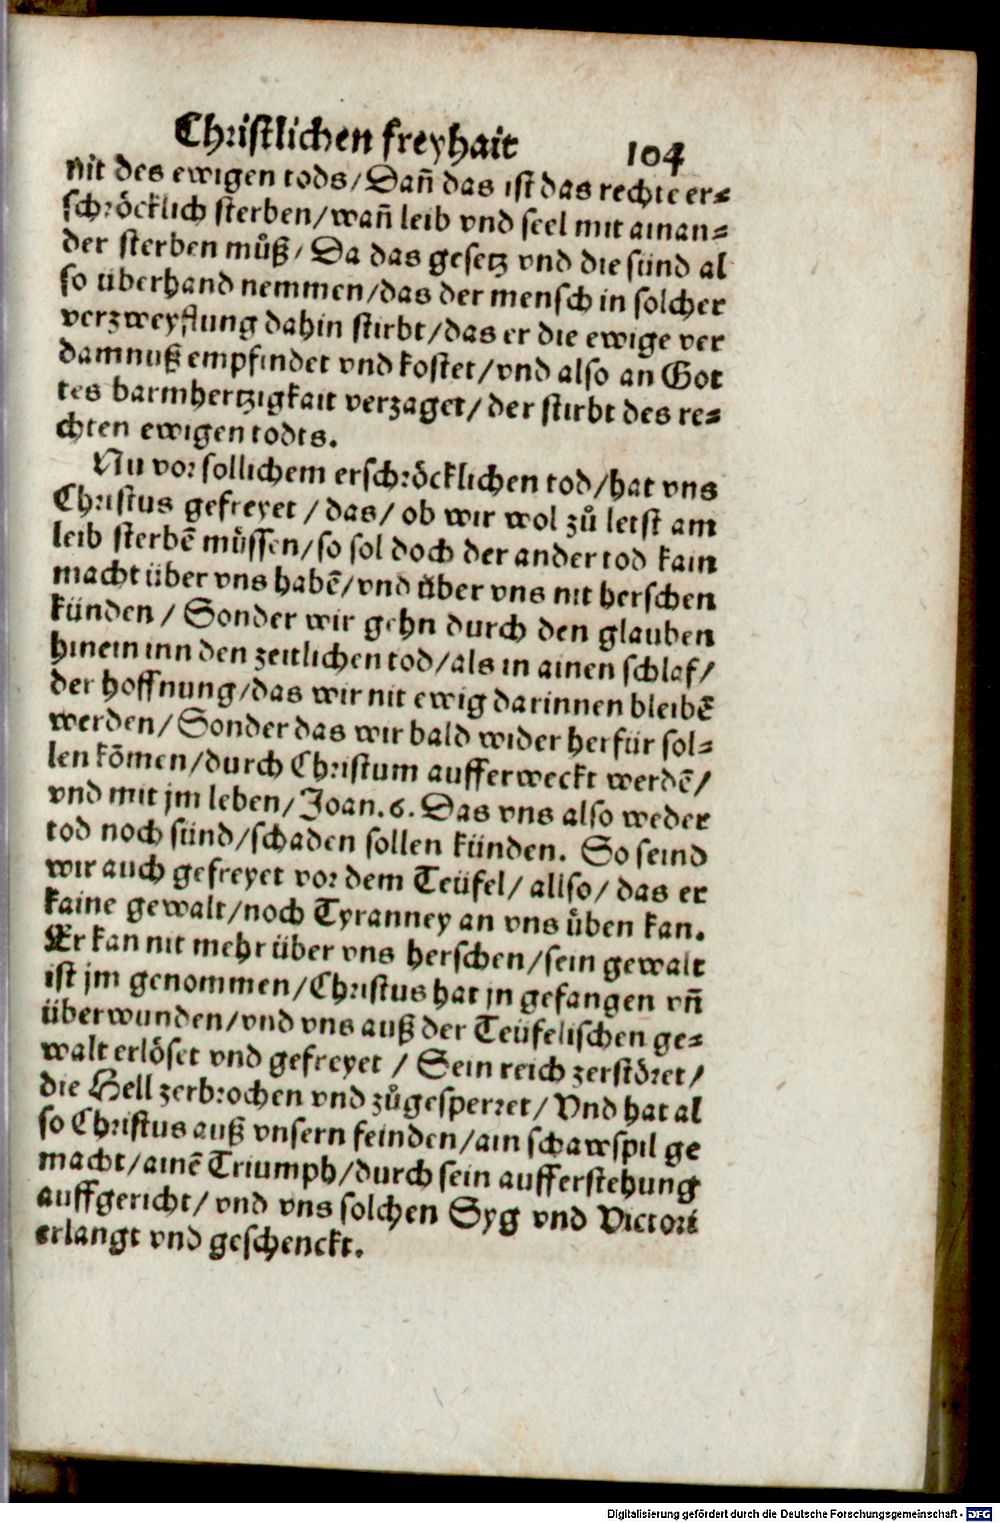 Christlichen freyhait 104
nit des ewigen tods/ Dañ das ist das rechte er⸗
schröcklich sterben/wañ leib vnd seel mit ainan⸗
der sterben můß/ Da das gesetz vnd die sünd al
so überhand nemmen/das der mensch in solcher
verzweyflung dahin stirbt/das er die ewige ver
damnuß empfindet vnd kostet/vnd also an Got
tes barmhertzigkait verzaget/ der stirbt des re⸗
chten ewigen todts.
Nu vor sollichem erschröcklichen tod/hat vns
Christus gefreyet / das/ ob wir wol zů letst am
leib sterbē müssen/so sol doch der ander tod kain
macht über vns habē/vnd über vns nit herschen
künden / Sonder wir gehn durch den glauben
hinein inn den zeitlichen tod/als in ainen schlaf/
der hoffnung/das wir nit ewig darinnen bleibē
werden/ Sonder das wir bald wider herfür sol⸗
len kōmen/durch Christum aufferweckt werdē/
vnd mit jm leben/ Joan. 6. Das vns also weder
tod noch sünd/schaden sollen künden. So seind
wir auch gefreyet vor dem Teüfel/ allso/ das er
kaine gewalt/noch Tyranney an vns üben kan.
Er kan nit mehr über vns herschen/sein gewalt
ist jm genommen/Christus hat jn gefangen vñ
überwunden/vnd vns auß der Teüfelischen ge⸗
walt erlöset vnd gefreyet / Sein reich zerstöret/
die Hell zerbrochen vnd zůgesperret/ Vnd hat al
so Christus auß vnsern feinden/ain schawspil ge
macht/ainē Triumph/durch sein aufferstehung
auffgericht/ vnd vns solchen Syg vnd Victori
erlangt vnd geschenckt.
Digitalisierung gefördert durch die Deutsche Forschungsgemeinschaft - DFG